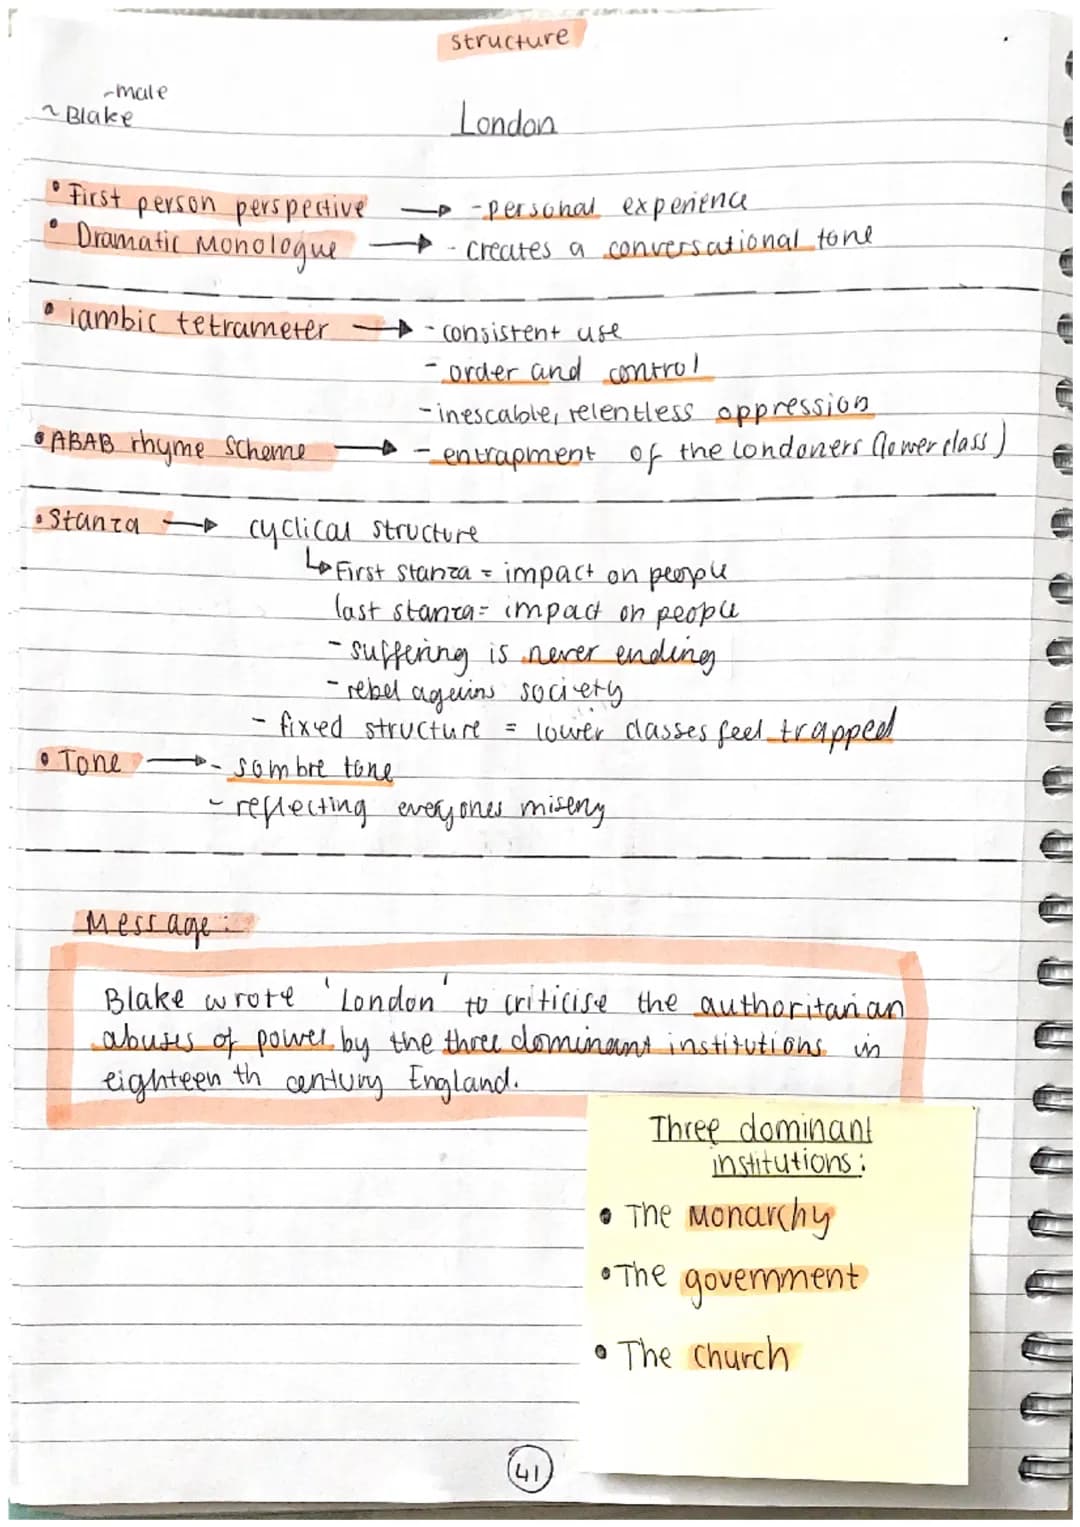 structure
-male
~ Blake
London
• First person perspective → - personal experience
• Dramatic Monologue → - creates a conversational tone
• iambic tetrameter → - consistent use
- order and control
- inescable, relentless oppression
• ABAB rhyme scheme → - entrapment of the Londoners (lower class)
• Stanza → cyclical structure
↳ First stanza = impact on people
last stanza = impact on people
- suffering is never ending
- rebel agains society
- fixed structure = lower classes feel trapped
• Tone → - sombre tone
- reflecting everyones misery
Message:
Blake wrote 'London' to criticise the authoritarian
abuses of power by the three dominant institutions in
eighteenth century England.
Three dominant
institutions:
• The Monarchy
• The government
• The church
41